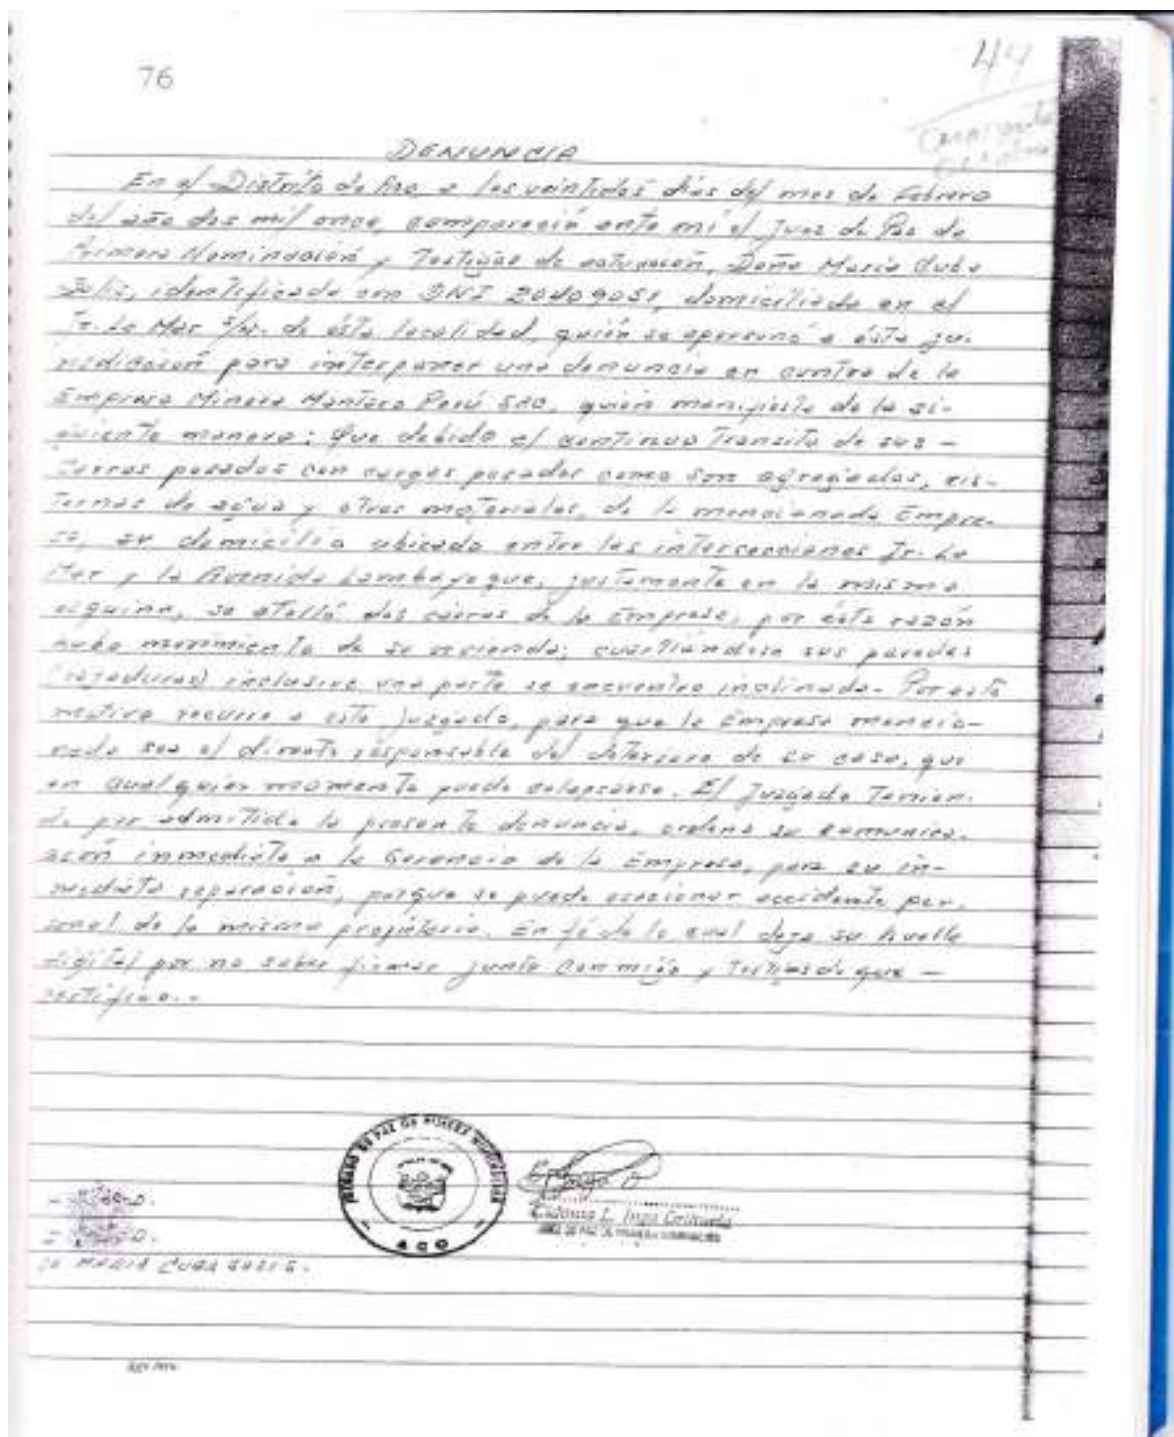 76
44
DENUNCIA
En el Distrito de Aco, a los veintidos dias del mes de Febrero
del año dos mil once, compareció ante mí el Juez de Paz de
Primera Nominación y Testigos de actuación, Doña María Cuba
Solis, identificada con DNI domiciliada en el
Jr. La Mar S/N. de ésta localidad, quién se apersonó a ésta ju-
risdicción para interponer una denuncia en contra de la
Empresa Minera Mantaro Perú SAC, quién manifiesta de la si-
guiente manera: Que debido al continuo Transito de sus -
carros pesados con cargas pesadas como son agregados, cis-
ternas de agua y otros materiales, de la mencionada Empre-
sa, su domicilio ubicado entre las intersecciones Jr. La
Mar y la Avenida Lambayeque, justamente en la misma
esquina, se atolló dos carros de la Empresa, por ésta razón
hubo movimiento de su vivienda; cuarteándose sus paredes
(rajaduras) inclusive una parte se encuentra inclinada. Por este
motivo recurre a este Juzgado, para que la Empresa mencio-
nada sea el directo responsable del deterioro de su casa, que
en cualquier momento puede colapsarse. El Juzgado Tenien-
do por admitida la presente denuncia, ordena su comunica-
ción inmediata a la Gerencia de la Empresa, para su in-
mediata reparación, porque se puede ocasionar accidente per-
sonal de la misma propietaria. En fé de lo cual deja su huella
digital por no saber firmar junto conmigo y testigos de que -
certifico.-
JUZGADO DE PAZ DE PRIMERA NOMINACION
ACO
JUEZ DE PAZ DE PRIMERA NOMINACION
MARIA CUBA SOLIS.